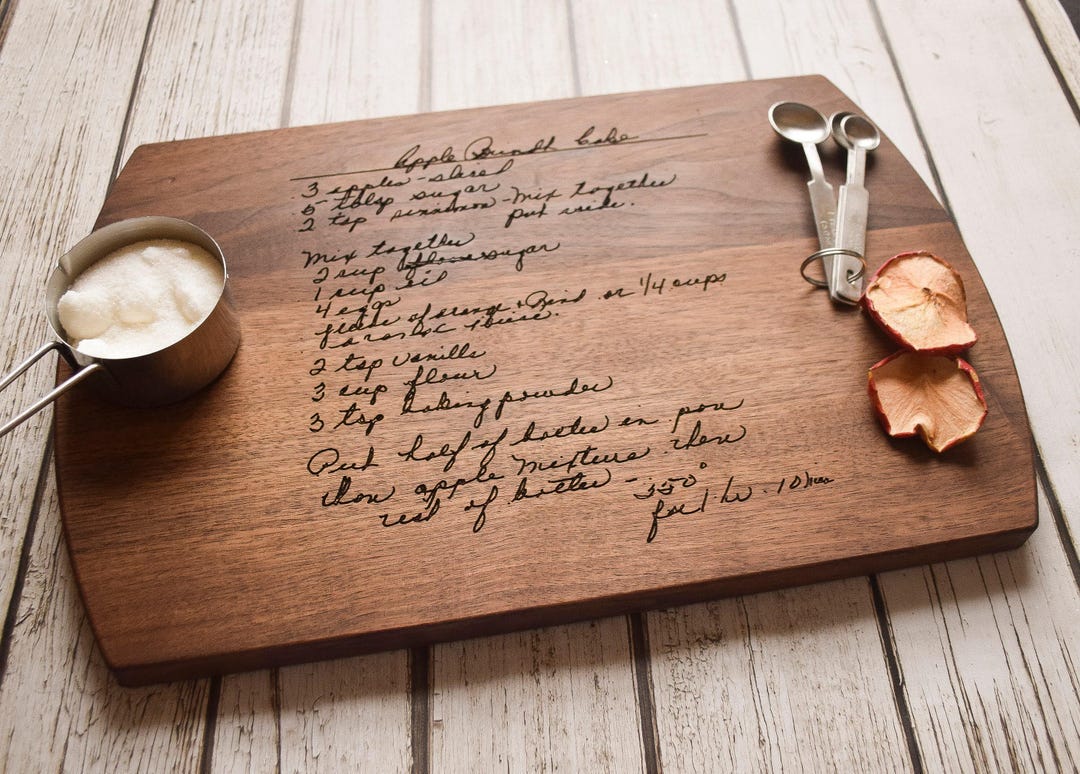 Apple Bundt Cake
3 apples - sliced
5 tblsp sugar
2 tsp sinnimon - mix together
put aside.
Mix together
2 cup flour sugar
1 cup oil
4 eggs
of orange + Rind or 1/4 cups
juice.
2 tsp vanilla
3 cup flour
3 tsp baking powder
Put half of batter in pan
then apple mixture then
rest of batter - 350°
for 1 hr. 10 min